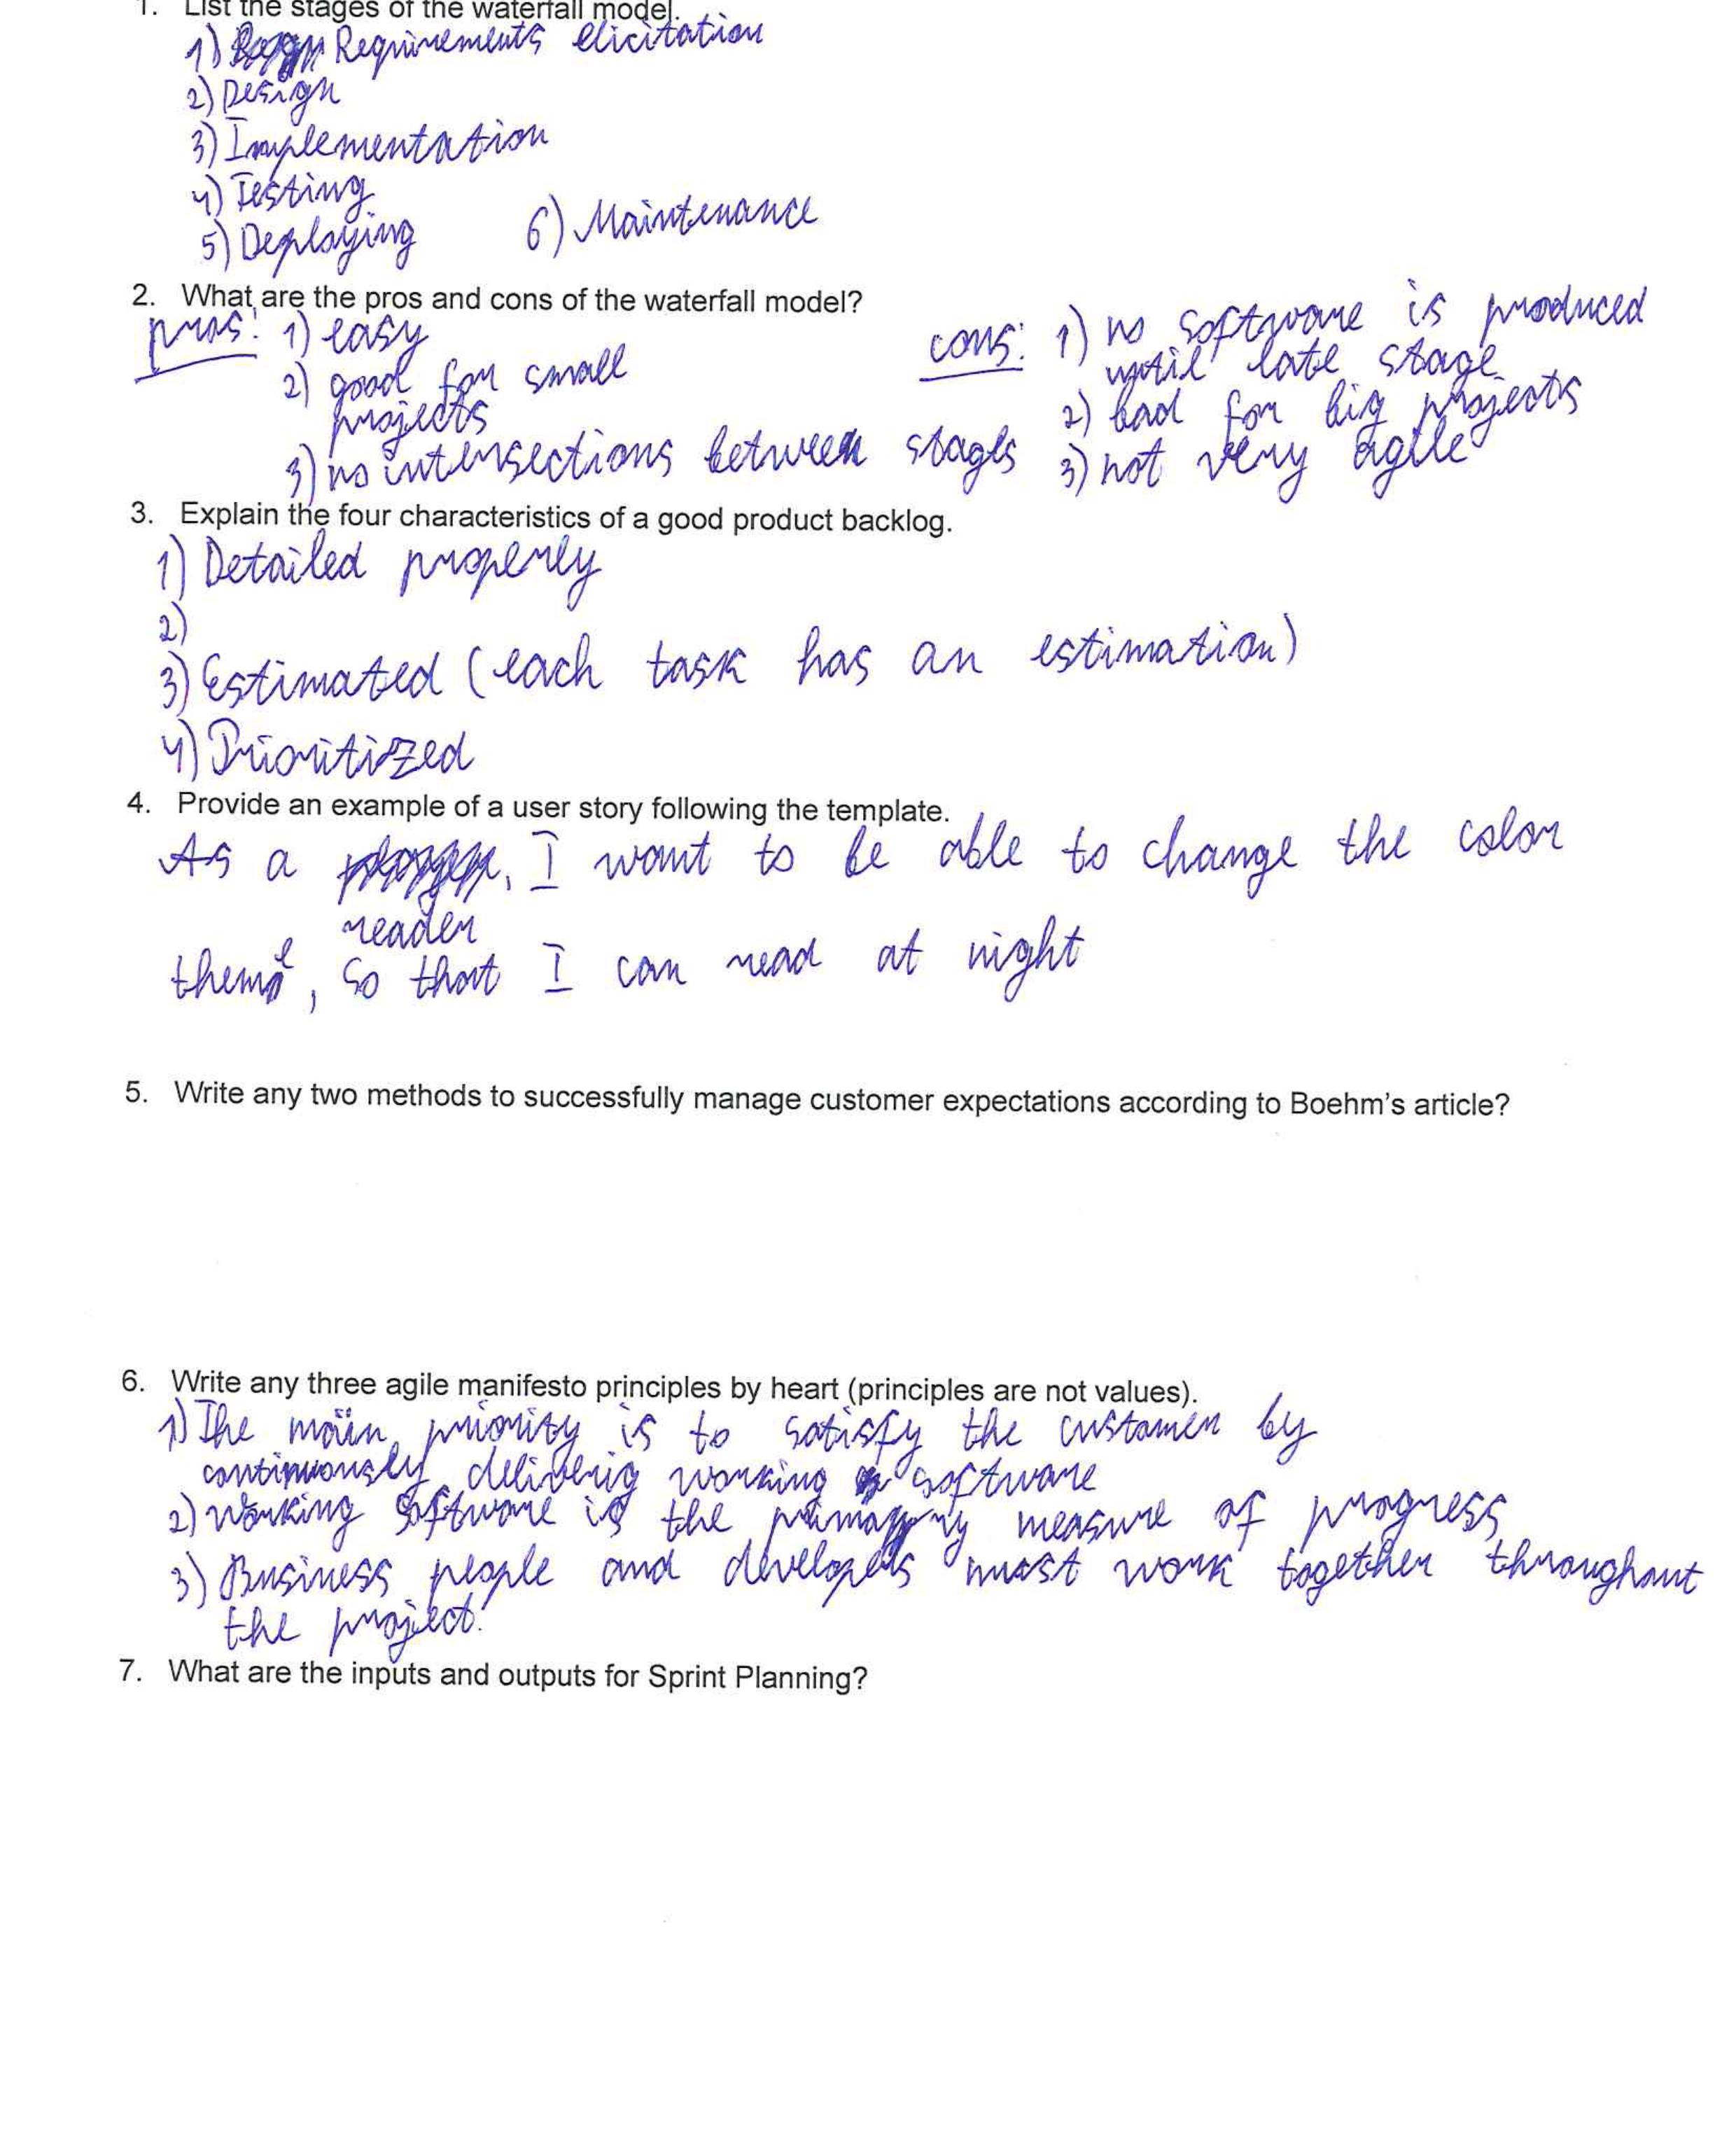 1. List the stages of the waterfall model.
1) Requirements elicitation
2) Design
3) Implementation
4) Testing
5) Deploying 6) Maintenance
2. What are the pros and cons of the waterfall model?
pros: 1) easy
2) good for small
projects
3) no intersections between stages
cons: 1) no software is produced
until late stage
2) bad for big projects
3) not very agile
3. Explain the four characteristics of a good product backlog.
1) Detailed properly
2)
3) Estimated (each task has an estimation)
4) Prioritized
4. Provide an example of a user story following the template.
As a reader, I want to be able to change the color
theme, so that I can read at night
5. Write any two methods to successfully manage customer expectations according to Boehm's article?
6. Write any three agile manifesto principles by heart (principles are not values).
1) The main priority is to satisfy the customer by
continuously delivering working software
2) Working software is the primary measure of progress
3) Business people and developers must work together throughout
the project.
7. What are the inputs and outputs for Sprint Planning?